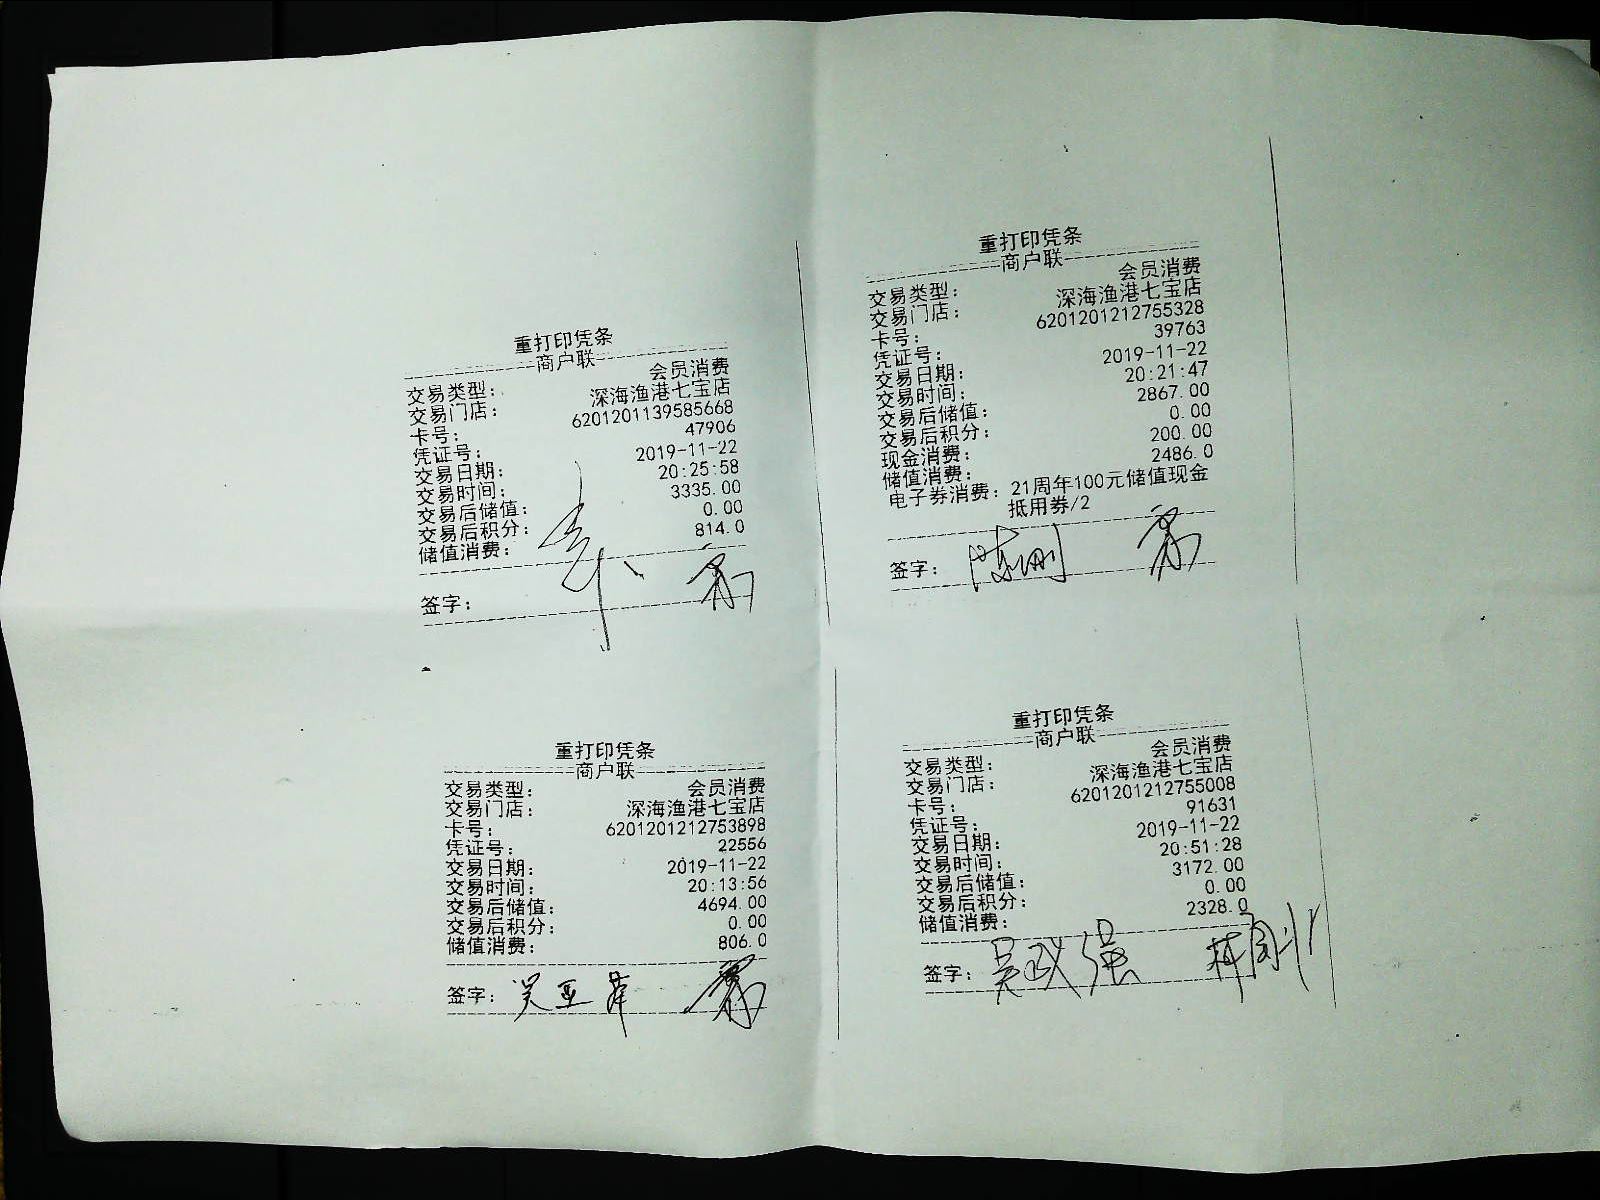 重打印凭条
商户联
交易类型： 会员消费
交易门店： 深海渔港七宝店
卡号： 6201201139585668
凭证号： 47906
交易日期： 2019-11-22
交易时间： 20:25:58
交易后储值： 3335.00
交易后积分： 0.00
储值消费： 814.0
签字：
重打印凭条
商户联
交易类型： 会员消费
交易门店： 深海渔港七宝店
卡号： 6201201212755328
凭证号： 39763
交易日期： 2019-11-22
交易时间： 20:21:47
交易后储值： 2867.00
交易后积分： 0.00
现金消费： 200.00
储值消费： 2486.0
电子券消费： 21周年100元储值现金
抵用券/2
签字： 陈刚
重打印凭条
商户联
交易类型： 会员消费
交易门店： 深海渔港七宝店
卡号： 6201201212753898
凭证号： 22556
交易日期： 2019-11-22
交易时间： 20:13:56
交易后储值： 4694.00
交易后积分： 0.00
储值消费： 806.0
签字： 吴亚萍
重打印凭条
商户联
交易类型： 会员消费
交易门店： 深海渔港七宝店
卡号： 6201201212755008
凭证号： 91631
交易日期： 2019-11-22
交易时间： 20:51:28
交易后储值： 3172.00
交易后积分： 0.00
储值消费： 2328.0
签字： 吴政强